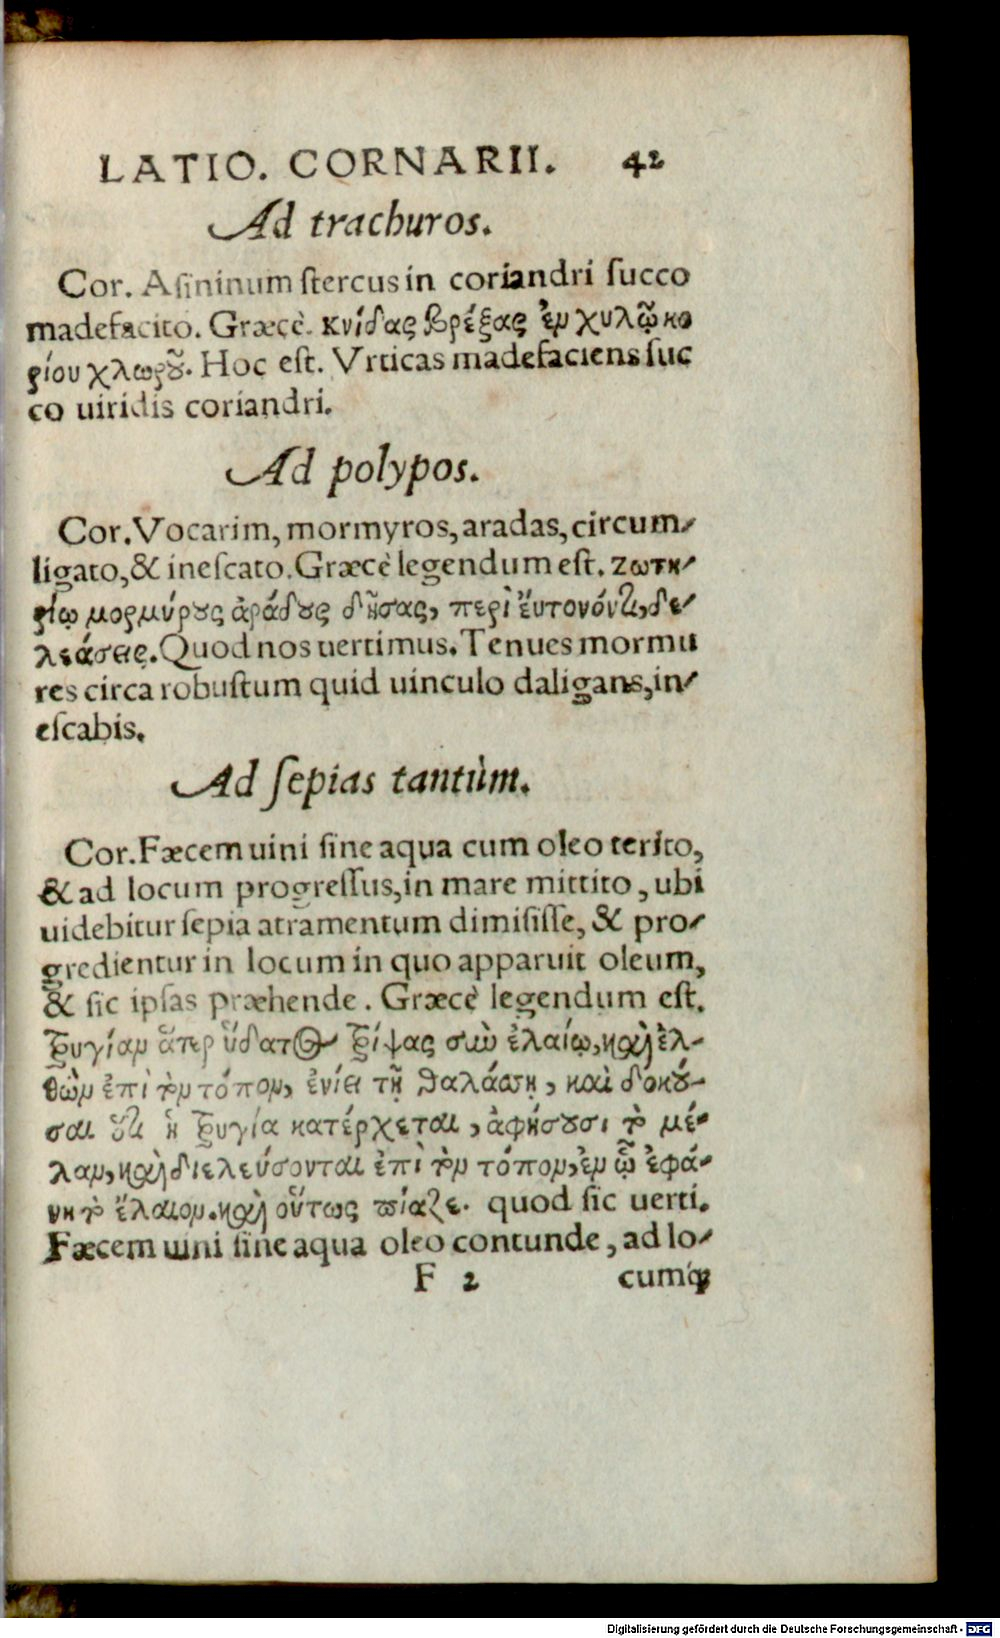 LATIO. CORNARII. 42
Ad trachuros.
Cor. Asininum stercus in coriandri succo
madefacito. Græcè. κνίδας βρέξας ἐν χυλῷ κο
ρίου χλωροῦ. Hoc est. Vrticas madefaciens suc
co uiridis coriandri.
Ad polypos.
Cor. Vocarim, mormyros, aradas, circum-
ligato, & inescato. Græcè legendum est. ζωτη-
ρίῳ μορμύρους ἀράδους δήσας, περὶ ἔυτονόντι, δε-
λεάσεις. Quod nos uertimus. Tenues mormu
res circa robustum quid uinculo daligans, in-
escabis.
Ad sepias tantùm.
Cor. Fæcem uini sine aqua cum oleo terito,
& ad locum progressus, in mare mittito, ubi
uidebitur sepia atramentum dimisisse, & pro-
gredientur in locum in quo apparuit oleum,
& sic ipsas præhende. Græcè legendum est.
τρυγίαν ἄτερ ὕδατος τρίψας σὺν ἐλαίῳ, καὶ ἐλ-
θὼν ἐπὶ τὸν τόπον, ἐνίει τῇ θαλάσσῃ, καὶ δοκοῦ-
σαι ὅτι ἡ τρυγία κατέρχεται, ἀφήσουσι τὸ μέ-
λαν, καὶ διελεύσονται ἐπὶ τὸν τόπον, ἐν ᾧ ἐφά-
νη τὸ ἔλαιον. καὶ οὕτως πίαζε. quod sic uerti.
Fæcem uini sine aqua oleo contunde, ad lo-
F 2 cumq́;
Digitalisierung gefördert durch die Deutsche Forschungsgemeinschaft - DFG